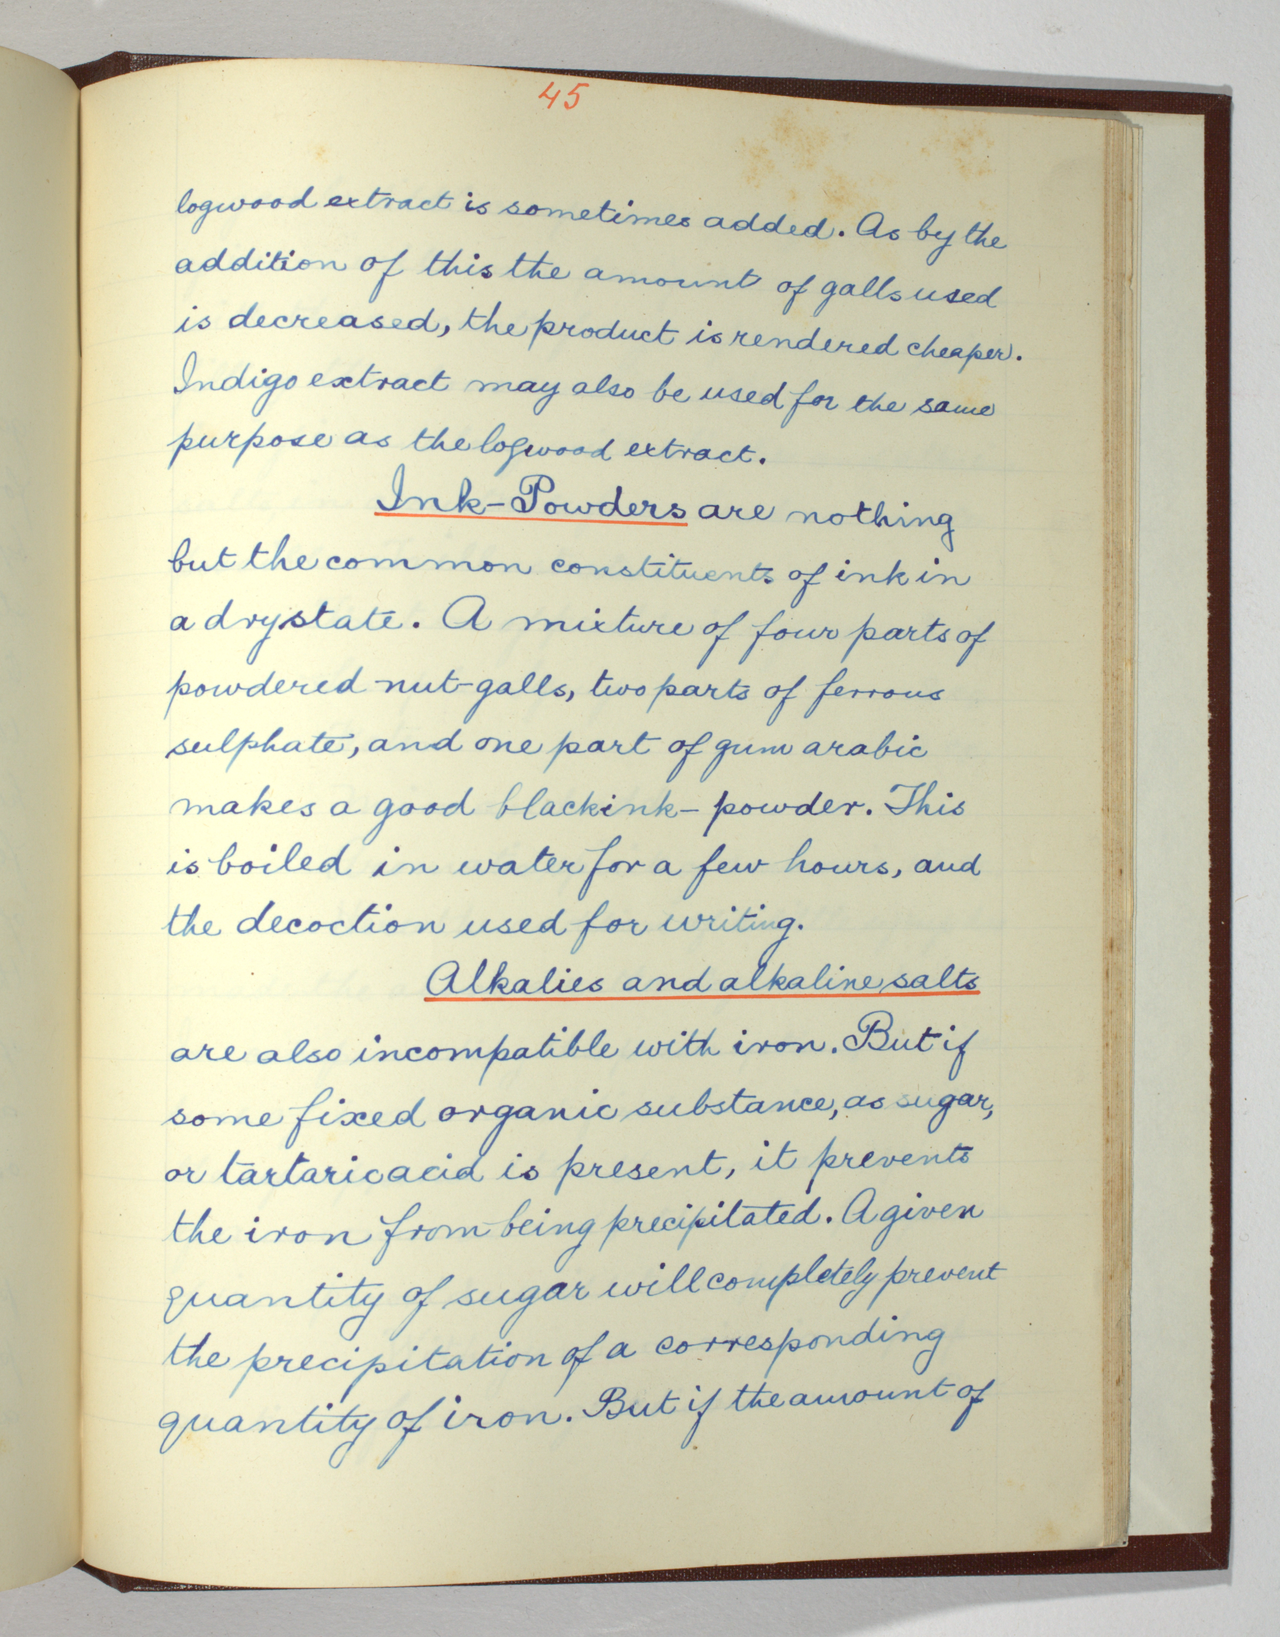 45
logwood extract is sometimes added. As by the
addition of this the amount of galls used
is decreased, the product is rendered cheaper.
Indigo extract may also be used for the same
purpose as the logwood extract.
Ink-Powders are nothing
but the common constituents of ink in
a dry state. A mixture of four parts of
powdered nut-galls, two parts of ferrous
sulphate, and one part of gum arabic
makes a good black ink-powder. This
is boiled in water for a few hours, and
the decoction used for writing.
Alkalies and alkaline salts
are also incompatible with iron. But if
some fixed organic substance, as sugar,
or tartaric acid is present, it prevents
the iron from being precipitated. A given
quantity of sugar will completely prevent
the precipitation of a corresponding
quantity of iron. But if the amount of